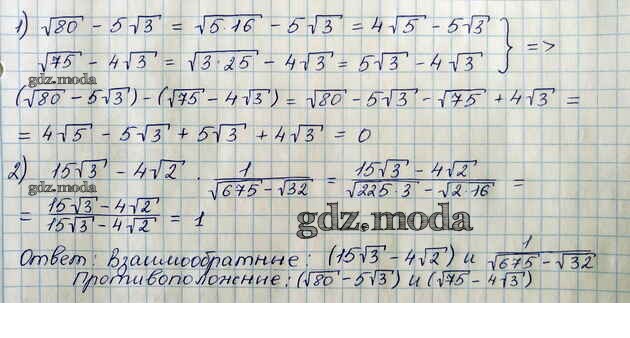 1) √80 - 5√3 = √5·16 - 5√3 = 4√5 - 5√3 } =>
√75 - 4√3 = √3·25 - 4√3 = 5√3 - 4√3
gdz.moda
(√80 - 5√3) - (√75 - 4√3) = √80 - 5√3 - √75 + 4√3 =
= 4√5 - 5√3 + 5√3 + 4√3 = 0
2) 15√3 - 4√2 · 1/(√675 - √32) = (15√3 - 4√2)/(√225·3 - √2·16) =
gdz.moda
= (15√3 - 4√2)/(15√3 - 4√2) = 1
gdz.moda
Ответ: Взаимообратные: (15√3 - 4√2) и 1/(√675 - √32)
Противоположение: (√80 - 5√3) и (√75 - 4√3)